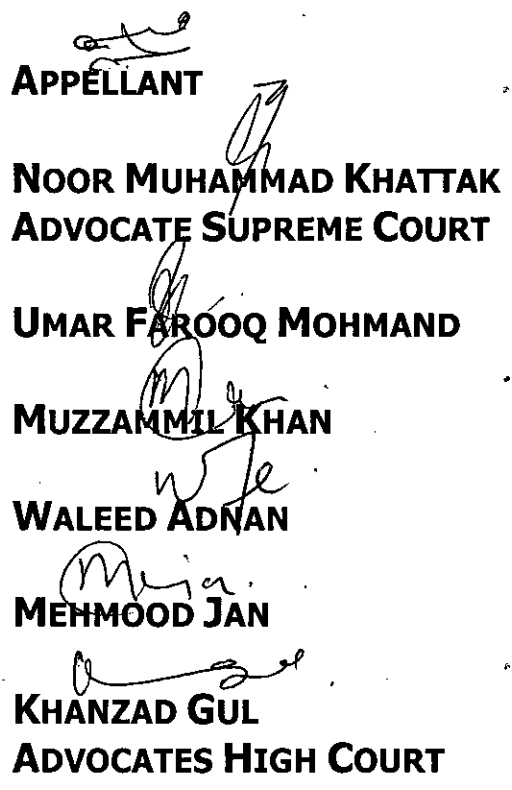 APPELLANT
NOOR MUHAMMAD KHATTAK
ADVOCATE SUPREME COURT
UMAR FAROOQ MOHMAND
MUZZAMMIL KHAN
WALEED ADNAN
MEHMOOD JAN
KHANZAD GUL
ADVOCATES HIGH COURT